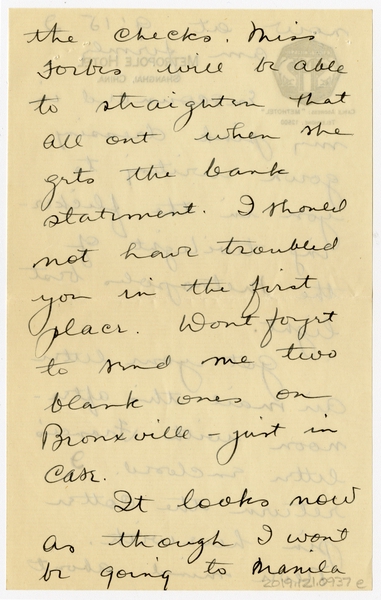 the checks. Miss
Forbes will be able
to straighten that
all out when she
gets the bank
statement. I should
not have troubled
you in the first
place. Wont forget
to send me two
blank ones on
Bronxville - just in
case.
It looks now
as though I wont
be going to Manila
2019.121.0937e